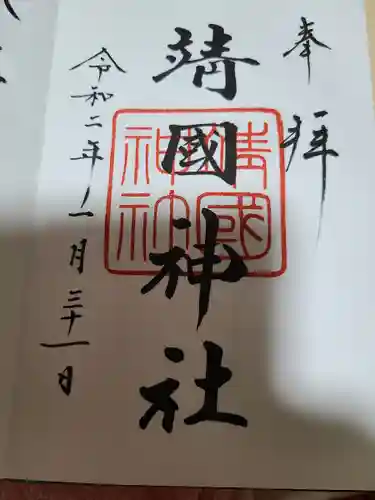 奉拝
靖國神社
靖國神社
令和二年一月三十一日